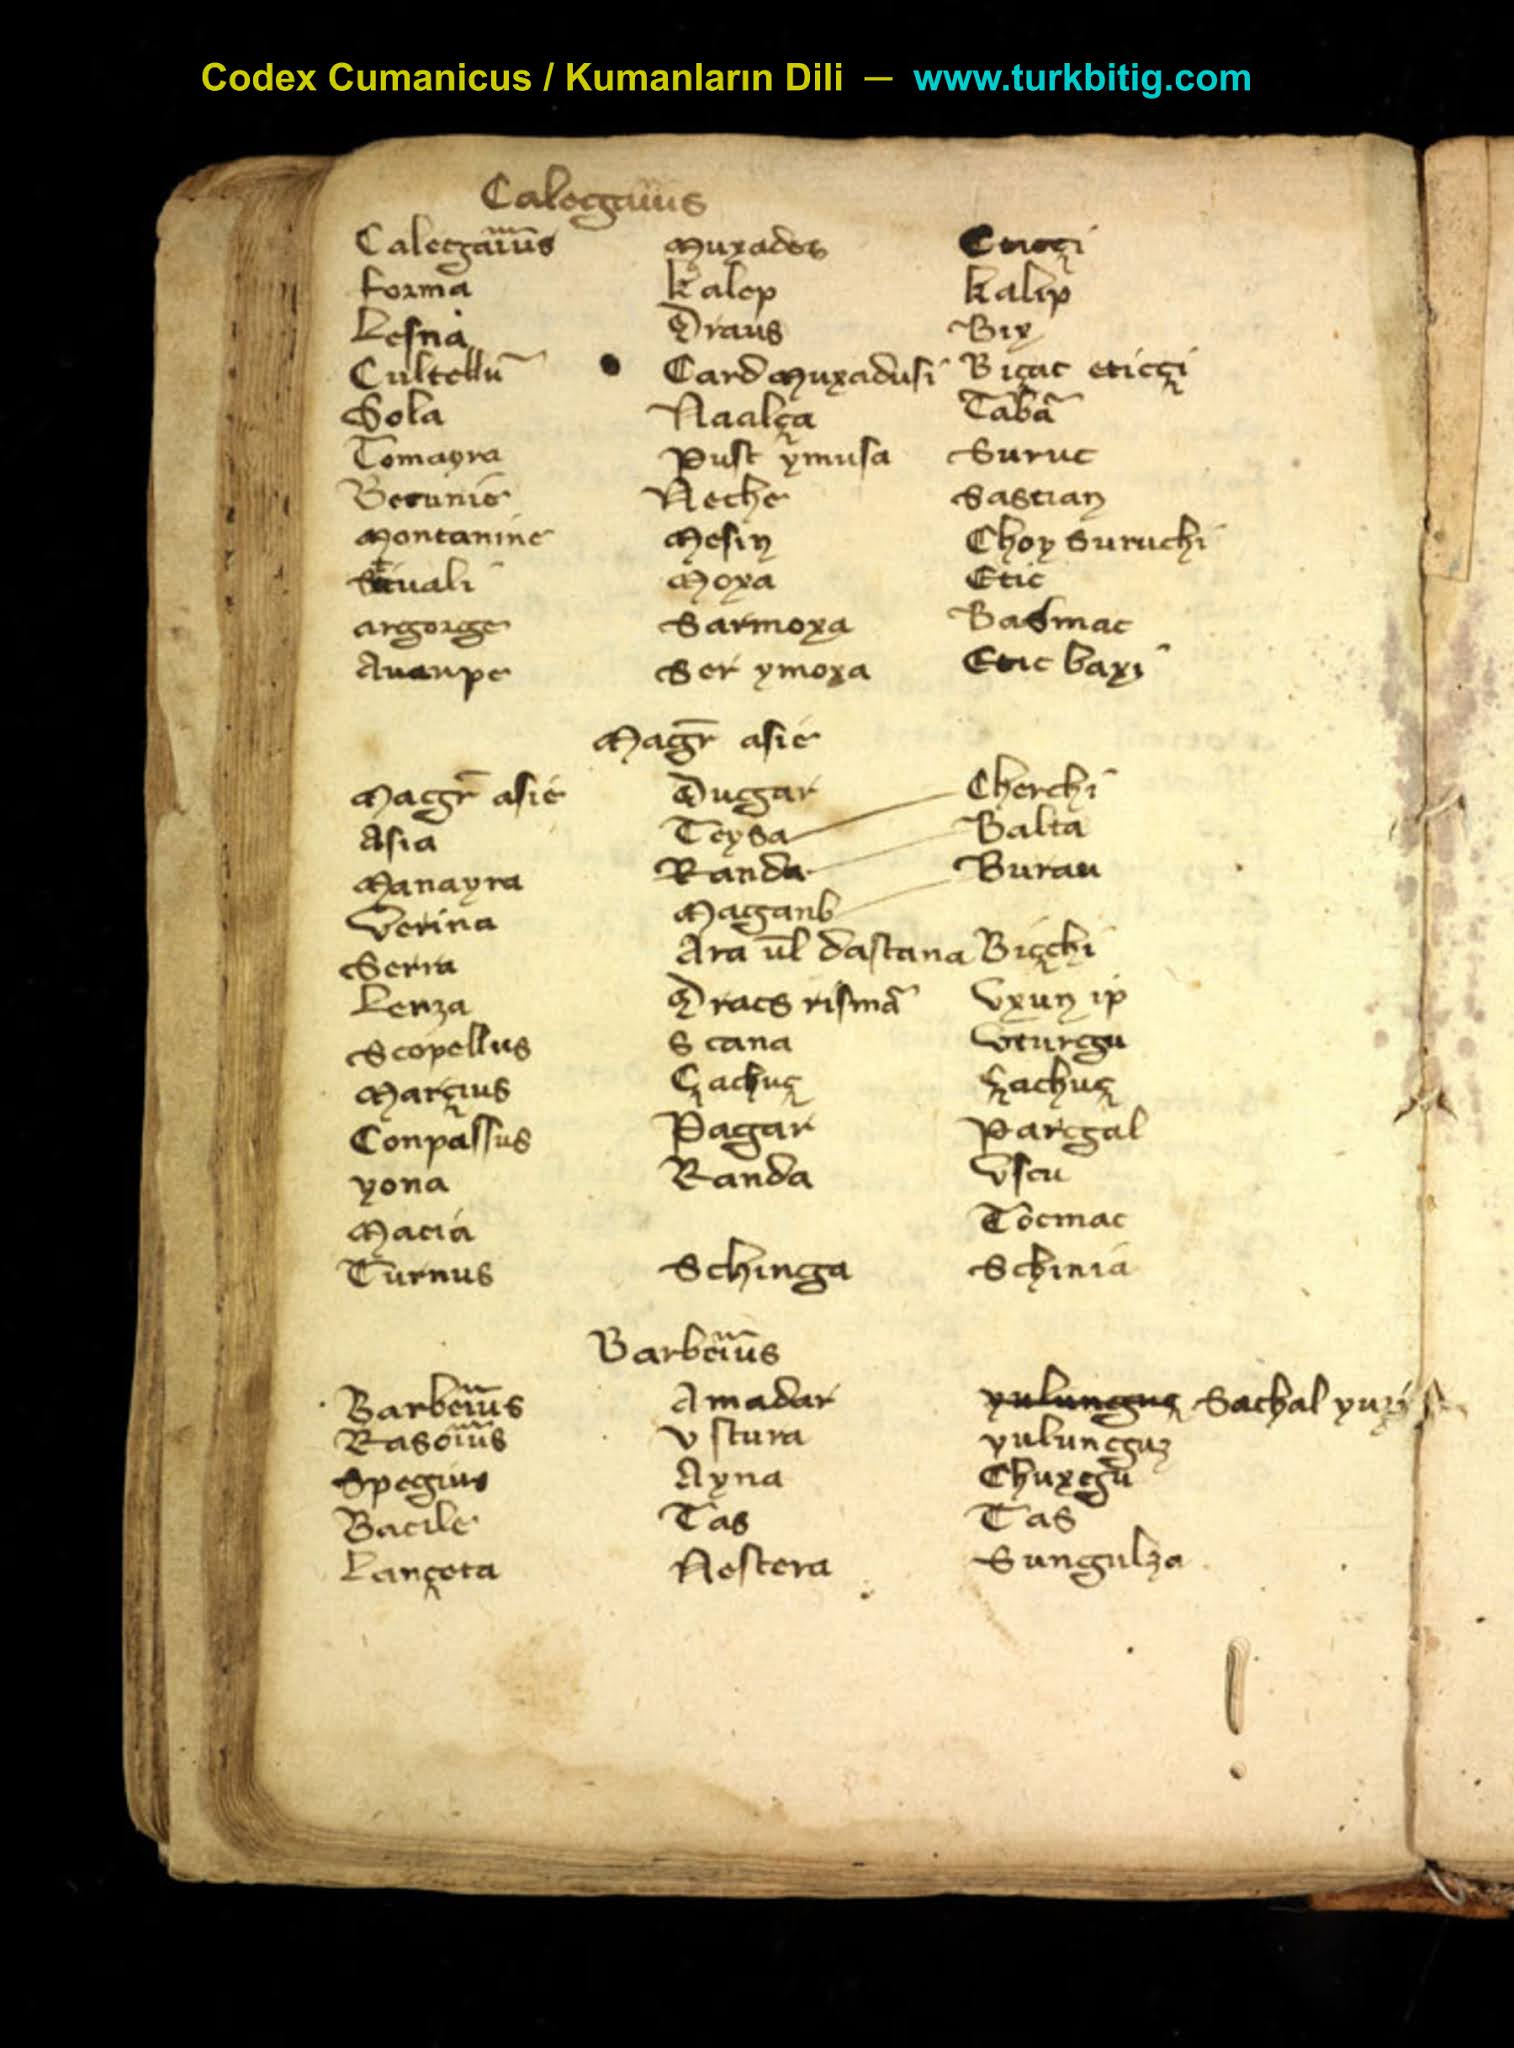 Codex Cumanicus / Kumanların Dili — www.turkbitig.com
Calecgarius
Calecgarius Muxados Eticçi
forma kalep kalip
Lesna Draus Bix
Cultellu̅ Card muxadusi Biçac eticçi
Sola Naalça Taba̅
Tomayra Pust ymusa Suruc
Becunie Neche Sastian
Montanine Mesin Choy suruchi
Stiuali Moxa Etic
argorge Sarmoxa Basmac
Auanpe Ser ymoxa Etic baxi
Magr̅ asie
Magr̅ asie Dugar Cherchi
Asia Teysa Balta
Manayra Randa Burau
Verina Maganb
Serra Ara ul̅ dastana Biçchi
Lenza Dracs risma̅ Vxun ip
Scopellus Scana Vturcgu
Marçius Çachuç Çachuç
Conpassus Pagar Parcgal
yona Randa Vscu
Macia Tocmac
Turnus Schinga Schinia
Barberius
Barberius Amadar Sachal yuzi
Rasorius Vstura yulunguz
Spegius Ayna Chuxcgu
Bacile Tas Tas
Lançeta Nestera Sungulza